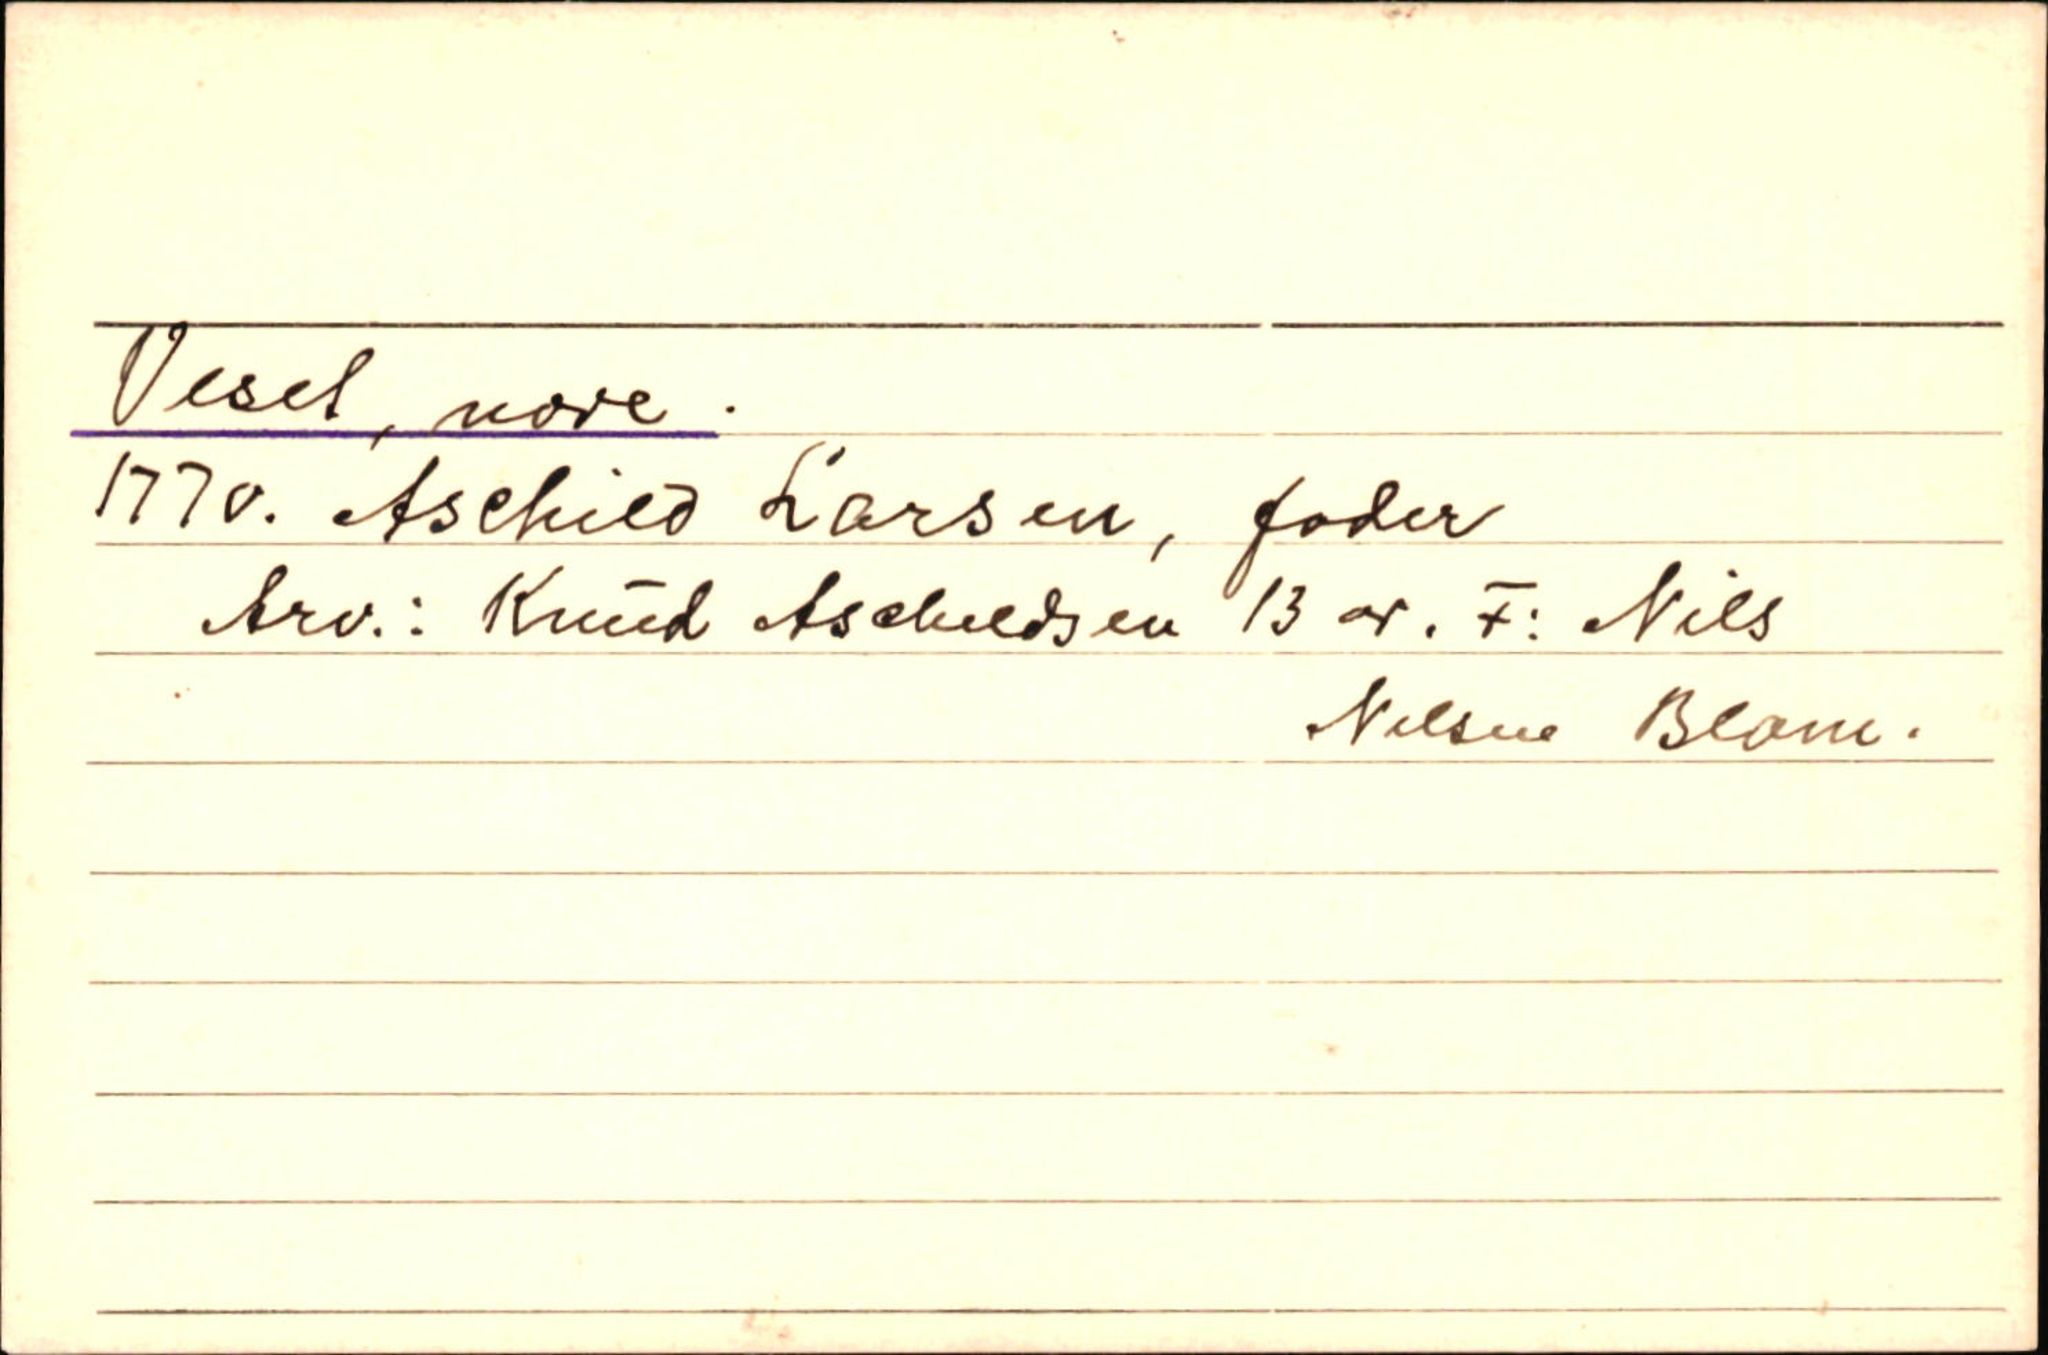 Veset, nore.
1770. Aschild Larsen, fader
Arv.: Knud Aschildsen 13 år. F: Nils
Nilsen Blom.